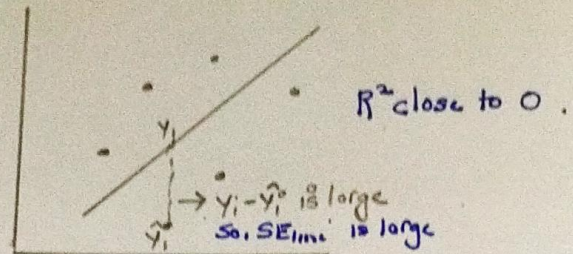 R² close to 0.
yᵢ
→ yᵢ - ŷᵢ is large
ŷᵢ So, SE_line is large